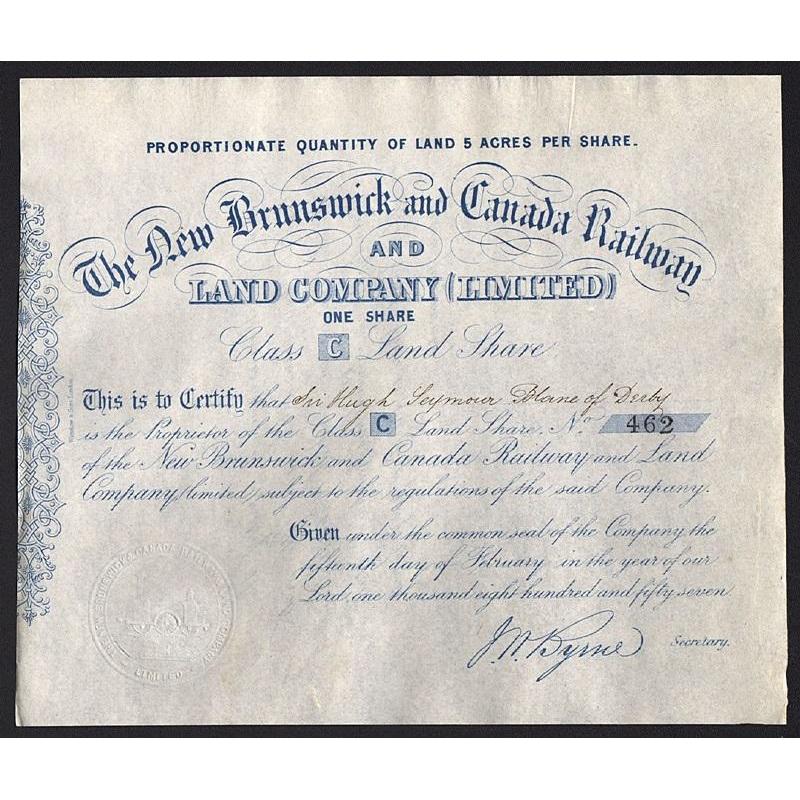 PROPORTIONATE QUANTITY OF LAND 5 ACRES PER SHARE.
The New Brunswick and Canada Railway
AND
LAND COMPANY (LIMITED)
ONE SHARE
Class C Land Share
This is to Certify that Sir Hugh Seymour Blane of Derby
is the Proprietor of the Class C Land Share, No 462
of the New Brunswick and Canada Railway and Land
Company, limited, subject to the regulations of the said Company.
Given under the common seal of the Company the
fifteenth day of February in the year of our
Lord, one thousand eight hundred and fifty seven
J. W. Byrne Secretary.
LIMITED